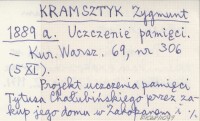 KRAMSZTYK Zygmunt
1889 a. Uczczenie pamięci.
– Kur. Warsz. 69, nr 306
(5 XI).
Projekt uczczenia pamięci
Tytusa Chałubińskiego przez za-
kup jego domu w Zakopanem i